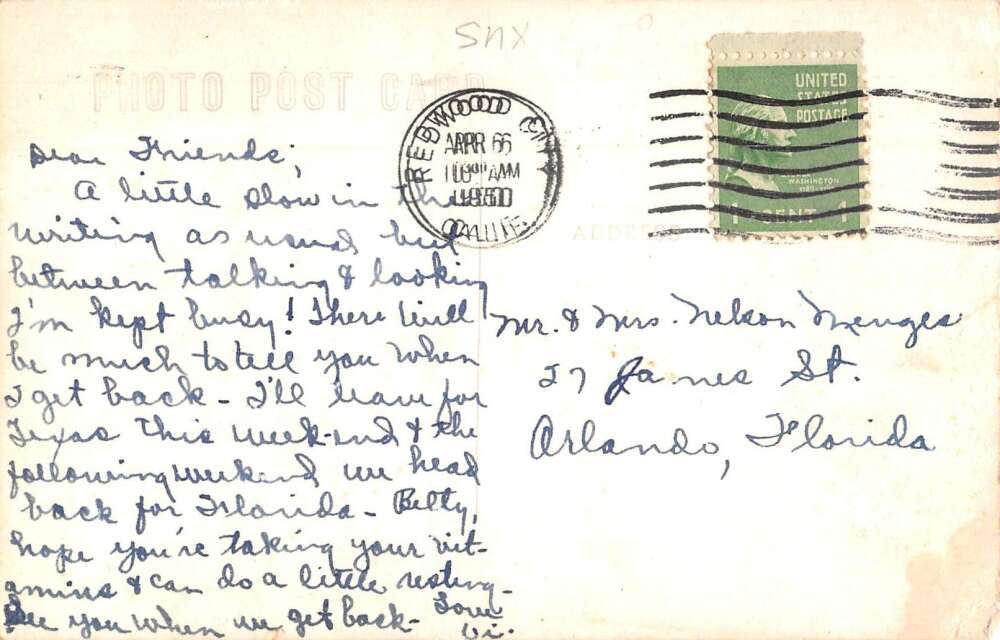 SNX
PHOTO POST CARD
REDWOOD CITY
APR 6
AM
1950
CALIF.
UNITED
STATES
POSTAGE
WASHINGTON
1 CENT 1
ADDRESS
Dear Friends,
A little slow in the
writing as usual but
between talking & looking
I'm kept busy! There will
be much to tell you when
I get back - I'll leave for
Texas this week-end & the
following weekend we head
back for Florida - Betty,
hope you're taking your vit-
amins & can do a little resting -
See you when we get back - Love
Vi.
Mr. & Mrs. Nelson Menges
27 James St.
Orlando, Florida